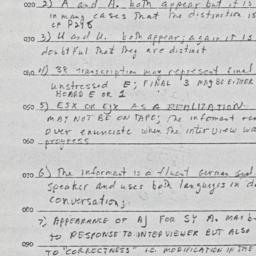 020 2) A and A. both appear but it is
in many cases that the distinction is
030 3) U and U. both appear; again it is
doubtful that they are distinct
040 4) 3R transcription may represent final
unstressed E; FINAL 3 MAY BE EITHER
HEARD E OR 1
050 5) ESX OR EJX AS A REALIZATION
MAY NOT BE ON TAPE; The informant
060 over enunciate when the interview
progress
070 6) The informant is a fluent German
speaker and uses both languages in
080 conversation,
7) APPEARANCE OF AJ FOR SY A. MAY
090 TO RESPONSE TO INTERVIEWER BUT ALSO
TO "CORRECTNESS" I.E. MODIFICATION IN THE